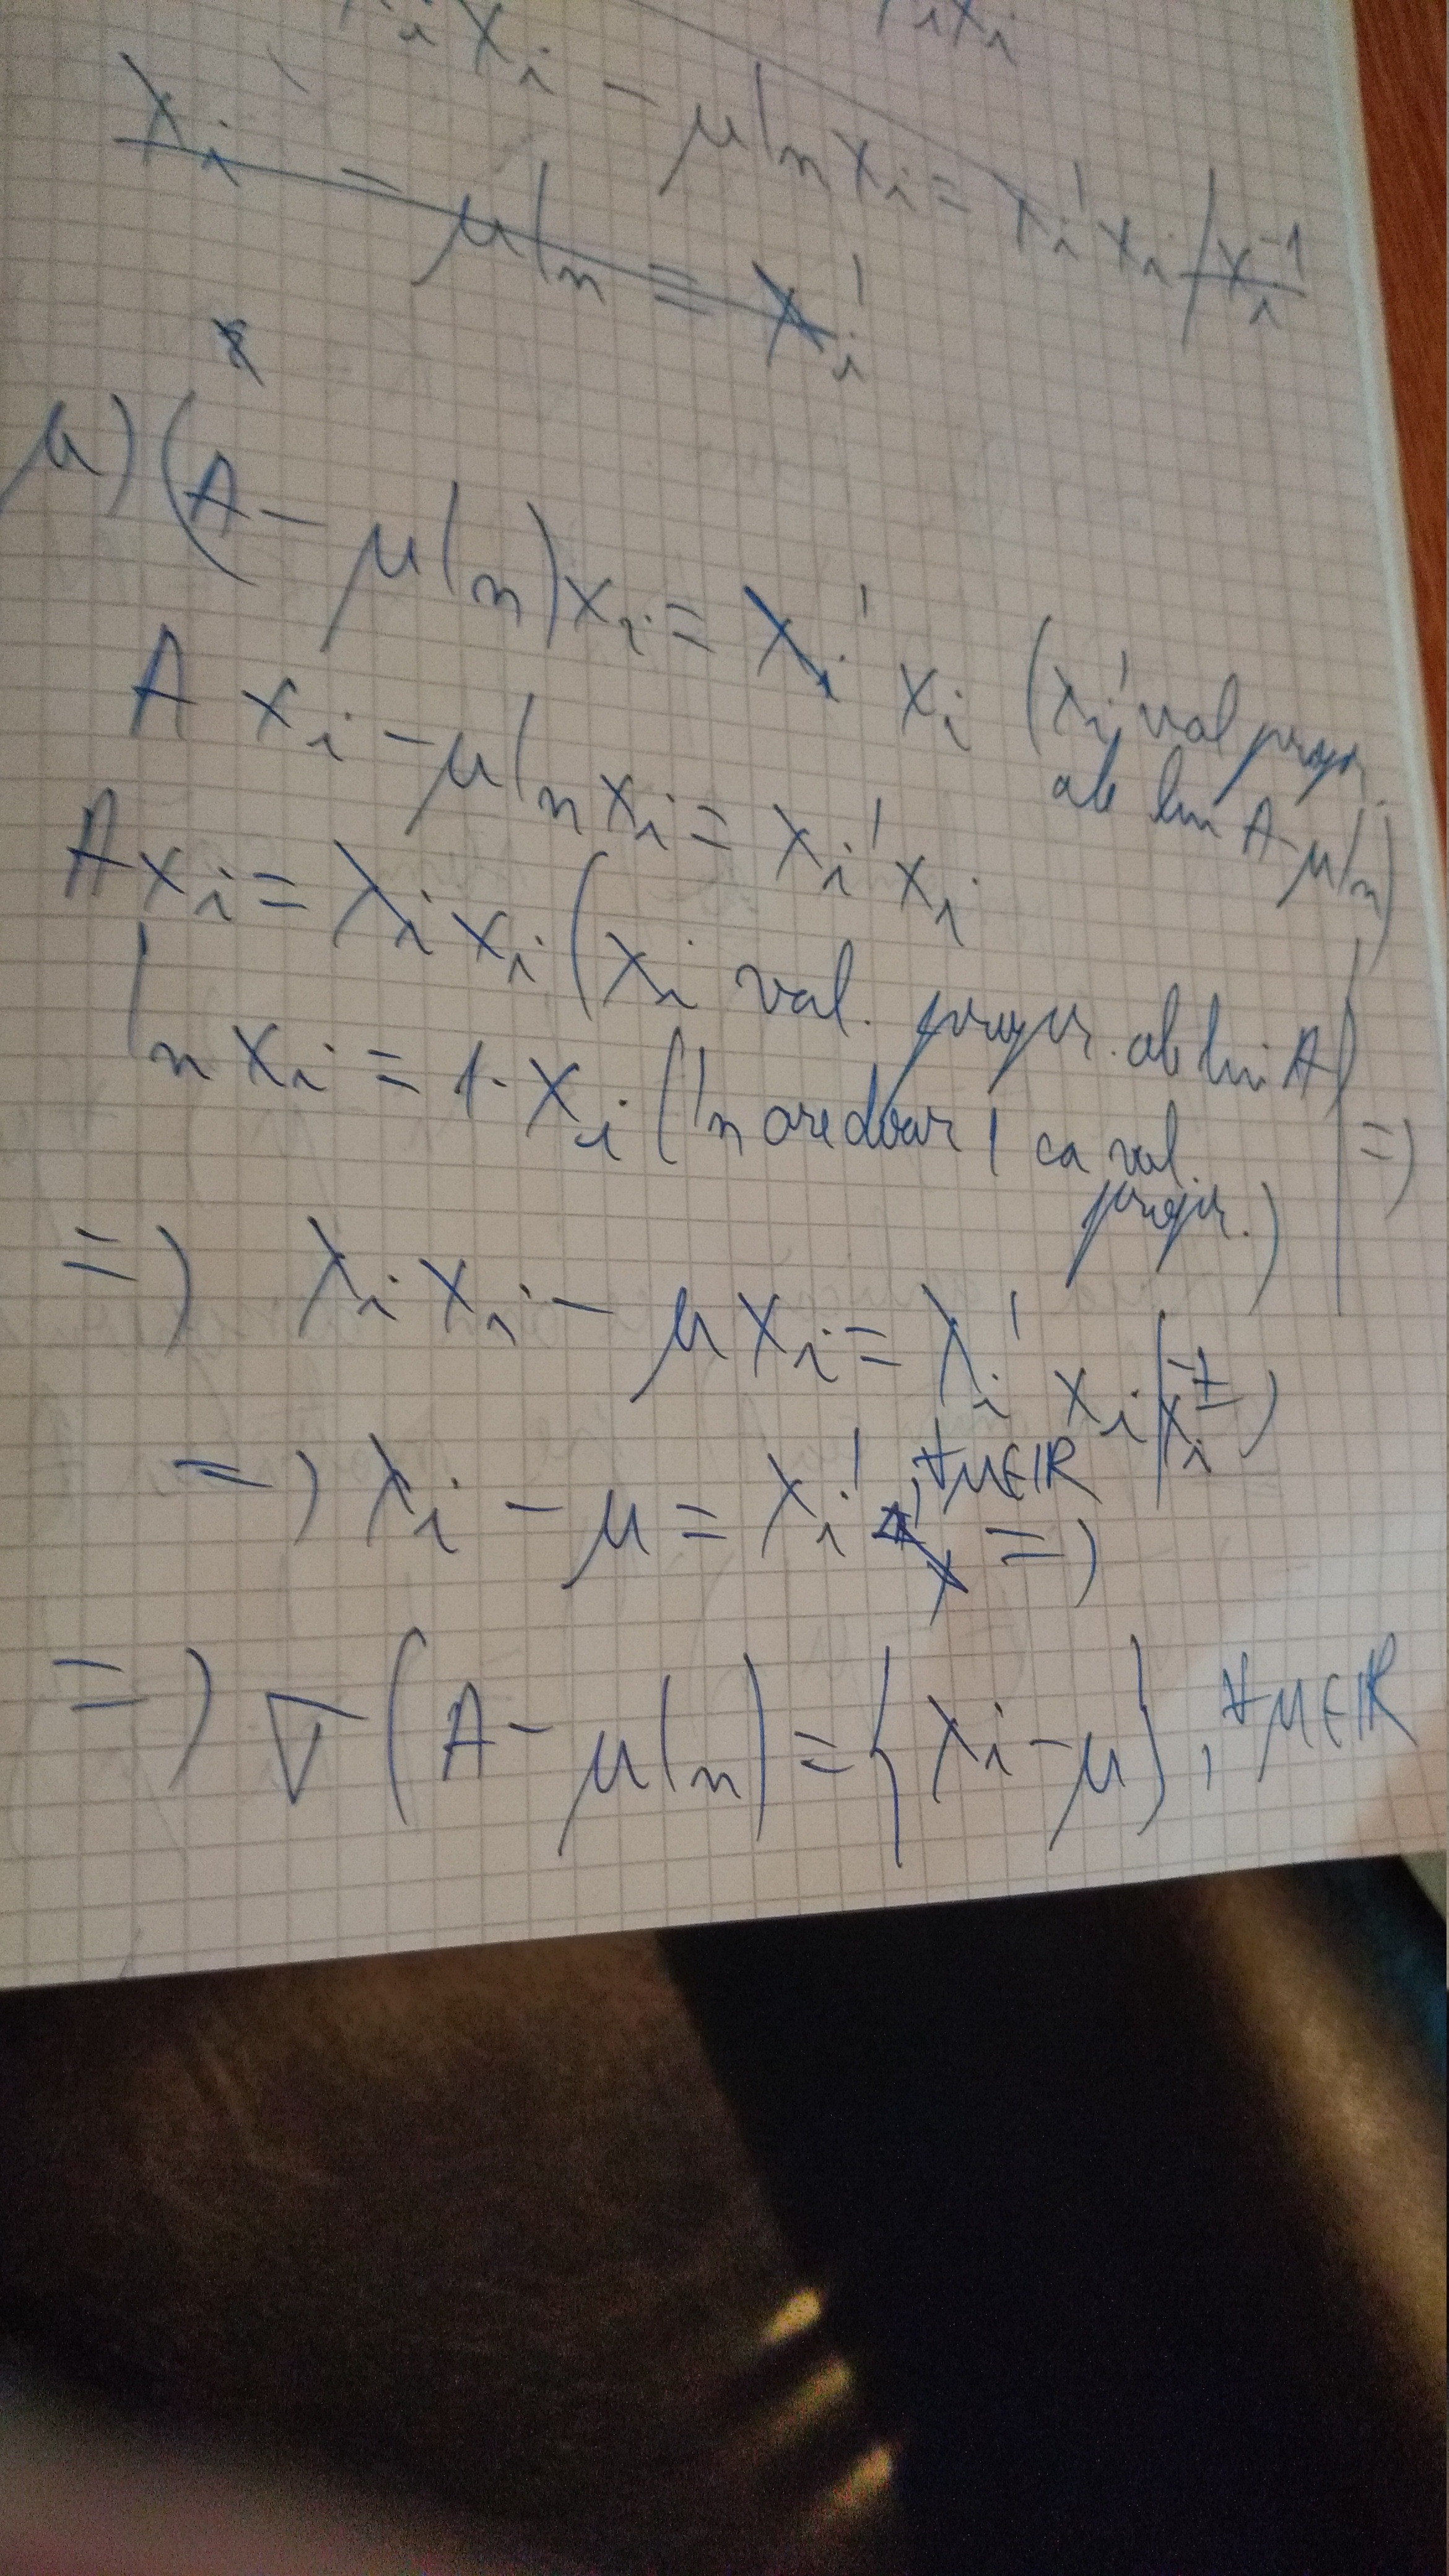 λi xi − μIn xi = λi' xi | xi⁻¹
λi − μIn = λi'
a) (A − μIn)xi = λi' xi (λi' val propr.
ale lui A−μIn)
A xi − μIn xi = λi' xi
A xi = λi xi (λi val. propr. ale lui A)
In xi = 1·xi (In are doar 1 ca val. | =)
propr.)
=) λi xi − μ xi = λi' xi | xi⁻¹ =)
=) λi − μ = λi', ∀μ∈ℝ =)
=) ∇(A − μIn) = {λi − μ}, ∀μ∈ℝ